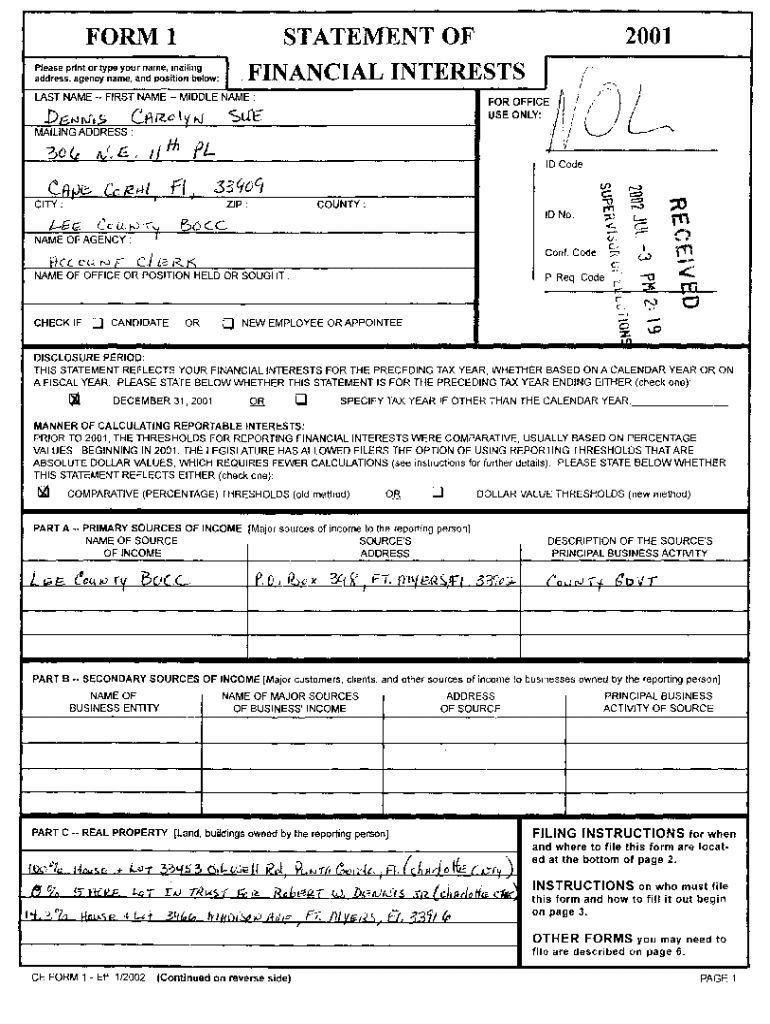 FORM 1
STATEMENT OF
FINANCIAL INTERESTS
2001
Please print or type your name, mailing
address, agency name, and position below:
LAST NAME -- FIRST NAME -- MIDDLE NAME :
DENNIS CAROLYN SUE
MAILING ADDRESS :
306 N.E. 11th PL
CAPE CORAL, Fl. 33909
CITY : ZIP : COUNTY :
LEE COUNTY BOCC
NAME OF AGENCY :
ACCOUNT CLERK
NAME OF OFFICE OR POSITION HELD OR SOUGHT :
CHECK IF CANDIDATE OR NEW EMPLOYEE OR APPOINTEE
FOR OFFICE
USE ONLY:
ID Code
ID No.
Conf. Code
P Req. Code
RECEIVED
2002 JUL -3 PM 2:19
SUPERVISOR OF ELECTIONS
DISCLOSURE PERIOD:
THIS STATEMENT REFLECTS YOUR FINANCIAL INTERESTS FOR THE PRECEDING TAX YEAR, WHETHER BASED ON A CALENDAR YEAR OR ON
A FISCAL YEAR. PLEASE STATE BELOW WHETHER THIS STATEMENT IS FOR THE PRECEDING TAX YEAR ENDING EITHER (check one):
DECEMBER 31, 2001 OR SPECIFY TAX YEAR IF OTHER THAN THE CALENDAR YEAR:
MANNER OF CALCULATING REPORTABLE INTERESTS:
PRIOR TO 2001, THE THRESHOLDS FOR REPORTING FINANCIAL INTERESTS WERE COMPARATIVE, USUALLY BASED ON PERCENTAGE
VALUES. BEGINNING IN 2001, THE LEGISLATURE HAS ALLOWED FILERS THE OPTION OF USING REPORTING THRESHOLDS THAT ARE
ABSOLUTE DOLLAR VALUES, WHICH REQUIRES FEWER CALCULATIONS (see instructions for further details). PLEASE STATE BELOW WHETHER
THIS STATEMENT REFLECTS EITHER (check one):
COMPARATIVE (PERCENTAGE) THRESHOLDS (old method) OR DOLLAR VALUE THRESHOLDS (new method)
PART A -- PRIMARY SOURCES OF INCOME [Major sources of income to the reporting person]
NAME OF SOURCE
OF INCOME
SOURCE'S
ADDRESS
DESCRIPTION OF THE SOURCE'S
PRINCIPAL BUSINESS ACTIVITY
LEE County BOCC P.O. Box 398, FT. MYERS, Fl. 33902 COUNTY GOVT
PART B -- SECONDARY SOURCES OF INCOME [Major customers, clients, and other sources of income to businesses owned by the reporting person]
NAME OF
BUSINESS ENTITY
NAME OF MAJOR SOURCES
OF BUSINESS' INCOME
ADDRESS
OF SOURCE
PRINCIPAL BUSINESS
ACTIVITY OF SOURCE
PART C -- REAL PROPERTY [Land, buildings owned by the reporting person]
100% House + LOT 33453 Oil Well Rd, Punta Gorda, Fl. (Charlotte Cnty)
0% LOT IN TRUST FOR ROBERT W. DENNIS JR (Charlotte
14.3% House + Lot 3466 MADISON AVE, FT. MYERS, Fl. 33916
FILING INSTRUCTIONS for when
and where to file this form are locat-
ed at the bottom of page 2.
INSTRUCTIONS on who must file
this form and how to fill it out begin
on page 3.
OTHER FORMS you may need to
file are described on page 6.
CE FORM 1 - Eff. 1/2002 (Continued on reverse side)
PAGE 1